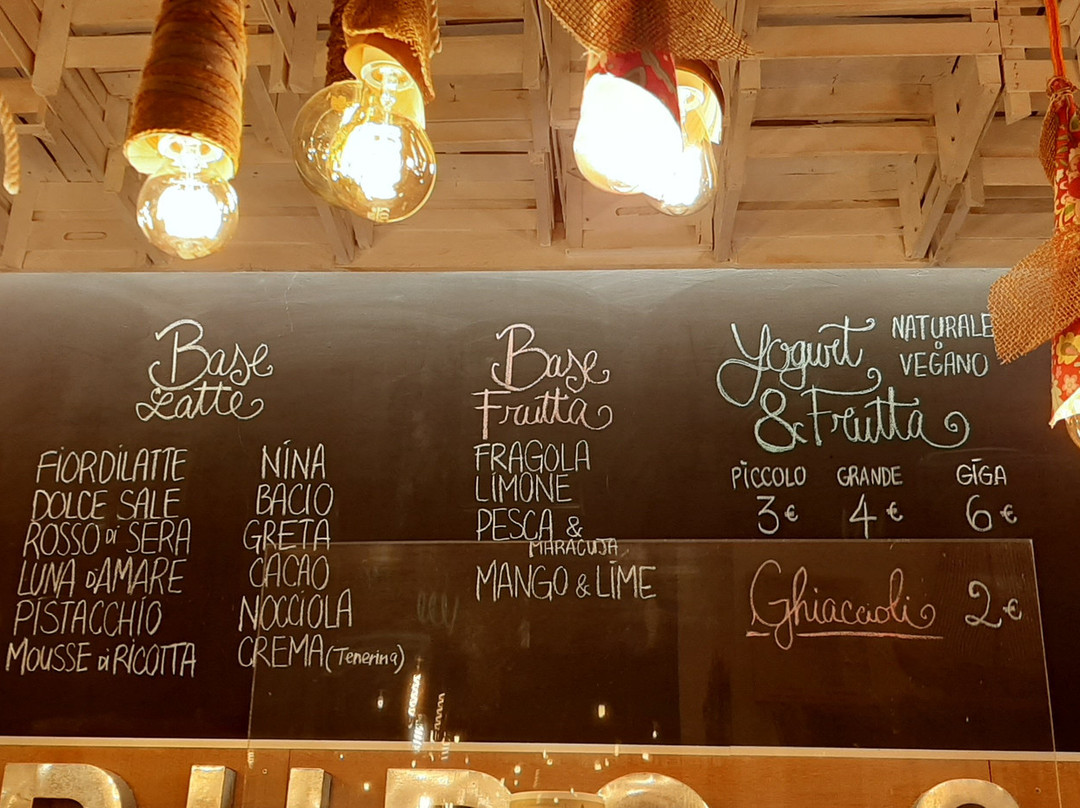 Base
Latte
FIORDILATTE
DOLCE SALE
ROSSO di SERA
LUNA d'AMARE
PISTACCHIO
MOUSSE di RICOTTA
NINA
BACIO
GRETA
CACAO
NOCCIOLA
CREMA (Tenerina)
Base
Frutta
FRAGOLA
LIMONE
PESCA &
MARACUJA
MANGO & LIME
Yogurt
& Frutta
NATURALE
o
VEGANO
PICCOLO GRANDE GIGA
3€ 4€ 6€
Ghiaccioli 2€